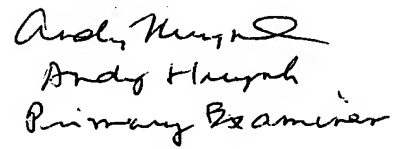 Andy Huynh
Andy Huynh
Primary Examiner